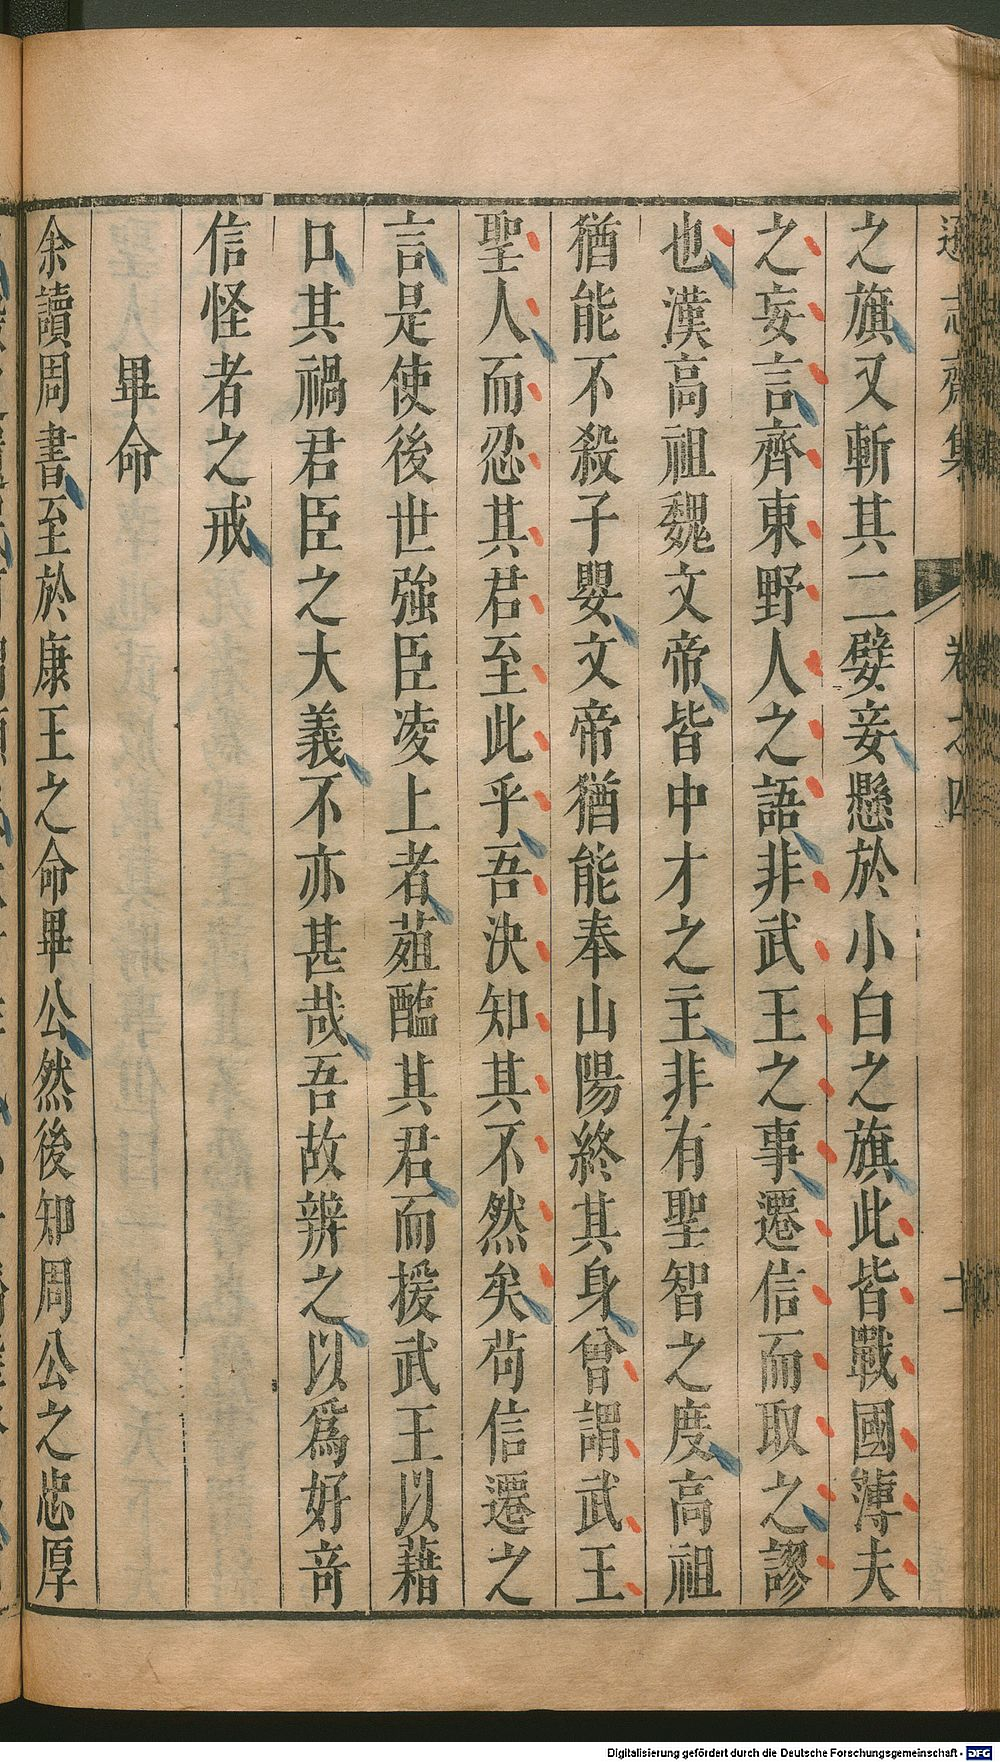 遜志齋集
卷之四
十一
之旗又斬其二嬖妾懸於小白之旗此皆戰國薄夫
之妄言齊東野人之語非武王之事遷信而取之謬
也漢高祖魏文帝皆中才之主非有聖智之度高祖
猶能不殺子嬰文帝猶能奉山陽終其身曾謂武王
聖人而忍其君至此乎吾決知其不然矣苟信遷之
言是使後世強臣凌上者葅醢其君而援武王以藉
口其禍君臣之大義不亦甚哉吾故辨之以爲好竒
信怪者之戒
畢命
余讀周書至於康王之命畢公然後知周公之忠厚
Digitalisierung gefördert durch die Deutsche Forschungsgemeinschaft - DFG